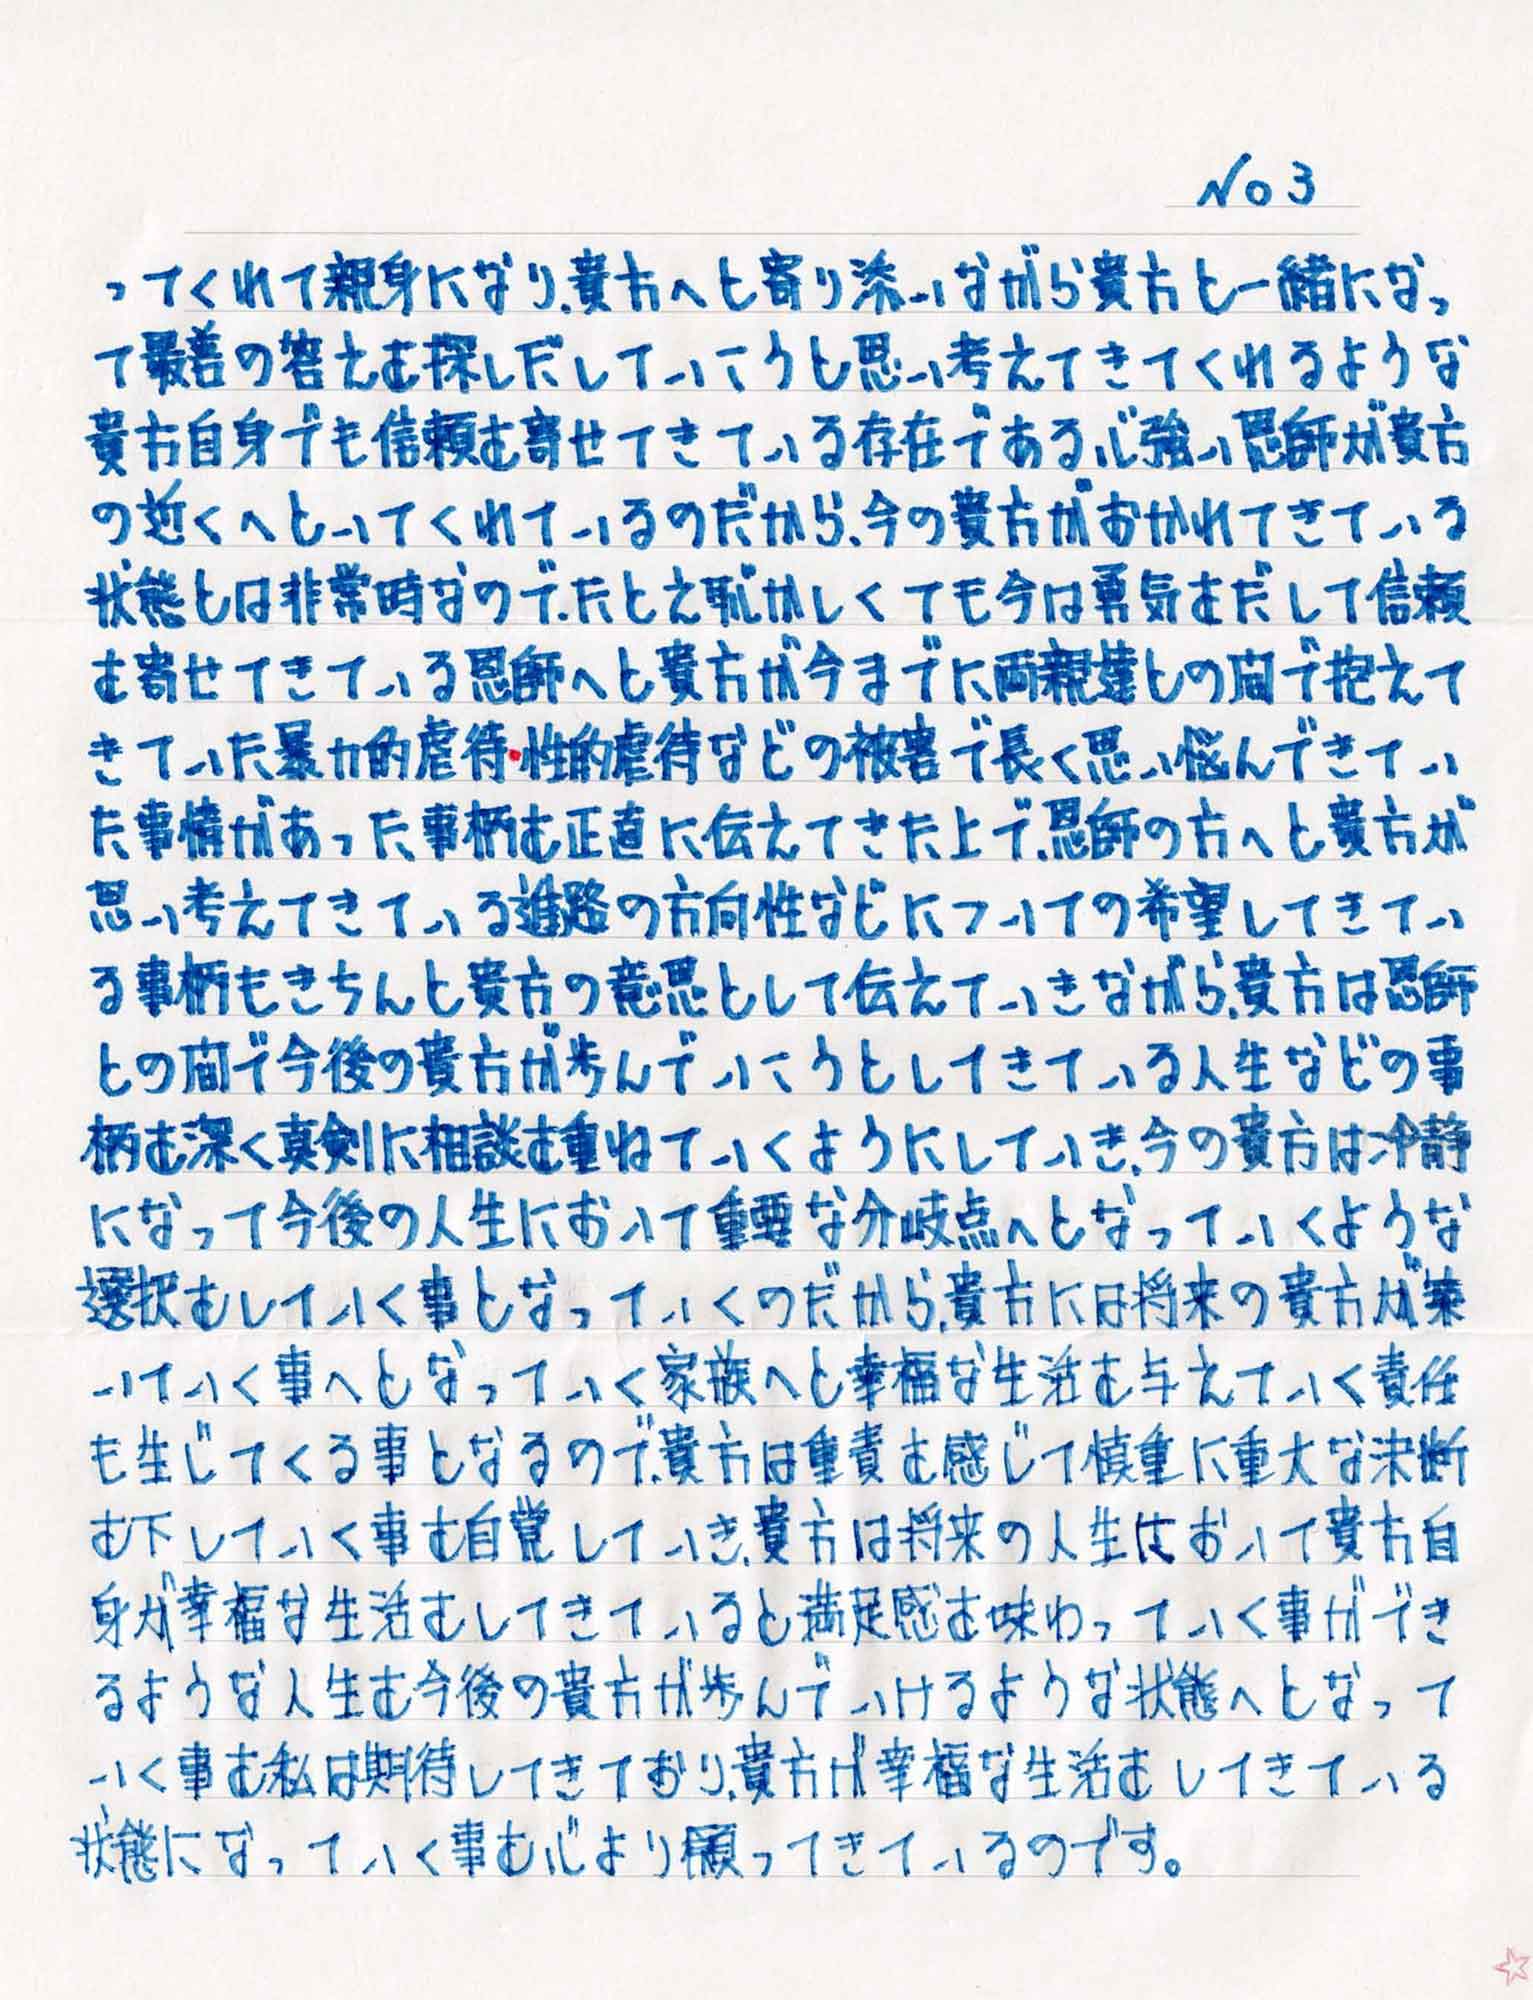 No 3
ってくれて親身になり、貴方へと寄り添いながら貴方と一緒になっ
て最善の答えを探しだしていこうと思い考えてきてくれるような
貴方自身でも信頼を寄せてきている存在である心強い恩師が貴方
の近くへといてくれているのだから、今の貴方がおかれてきている
状態とは非常時なので、たとえ恥かしくても今は勇気をだして信頼
を寄せてきている恩師へと貴方が今までに両親達との間で抱えて
きていた暴力的虐待・性的虐待などの被害で長く思い悩んできてい
た事情があった事柄を正直に伝えてきた上で、恩師の方へと貴方が
思い考えてきている進路の方向性などについての希望してきてい
る事柄もきちんと貴方の意思として伝えていきながら、貴方は恩師
との間で今後の貴方が歩んでいこうとしてきている人生などの事
柄を深く真剣に相談を重ねていくようにしていき、今の貴方は冷静
になって今後の人生において重要な分岐点へとなっていくような
選択をしていく事となっていくのだから、貴方には将来の貴方が築
いていく事へとなっていく家族へと幸福な生活を与えていく責任
も生じてくる事となるので、貴方は重責を感じて慎重に重大な決断
を下していく事を自覚していき、貴方は将来の人生において貴方自
身が幸福な生活をしてきていると満足感を味わっていく事ができ
るような人生を今後の貴方が歩んでいけるような状態へとなって
いく事を私は期待してきており、貴方が幸福な生活をしてきている
状態になっていく事を心より願ってきているのです。